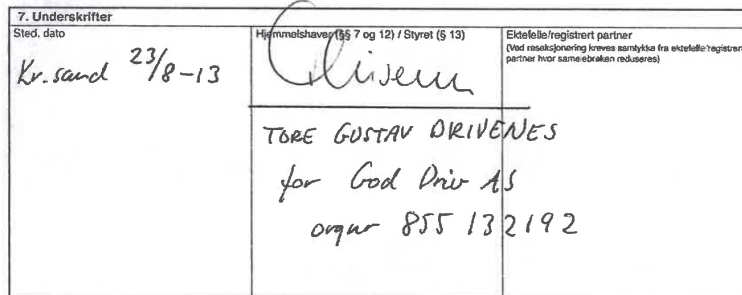 7. Underskrifter
Sted. dato
Kr.sand 23/8-13
Hjemmelshaver (§§ 7 og 12) / Styret (§ 13)
TORE GUSTAV DRIVENES
for God Driv AS
orgnr 855 132192
Ektefelle/registrert partner
(Ved reseksjonering kreves samtykke fra ektefelle/registrert
partner hvor sameiebrøken reduseres)